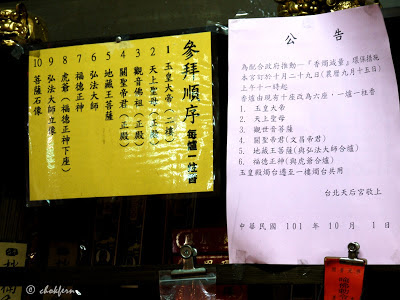 參拜順序 每爐一柱香
1 玉皇大帝(二樓)
2 天上聖母(正殿)
3 觀音佛祖(正殿)
4 關聖帝君(正殿)
5 地藏王菩薩
6 弘法大師
7 福德正神
8 虎爺(福德正神下座)
9 弘法大師立像
10 菩薩石像
公告
為配合政府推動─『香燭減量』環保措施
本宮訂於十月二十九日(農曆九月十五日)
上午十一時起
香爐由現有十座改為六座,一爐一柱香
1. 玉皇大帝
2. 天上聖母
3. 觀世音菩薩
4. 關聖帝君(文昌帝君)
5. 地藏王菩薩(與弘法大師合爐)
6. 福德正神(與虎爺合爐)
玉皇殿燭台遷至一樓燭台共用
台北天后宮敬上
中華民國 101 年 10 月 1 日
© chokfern